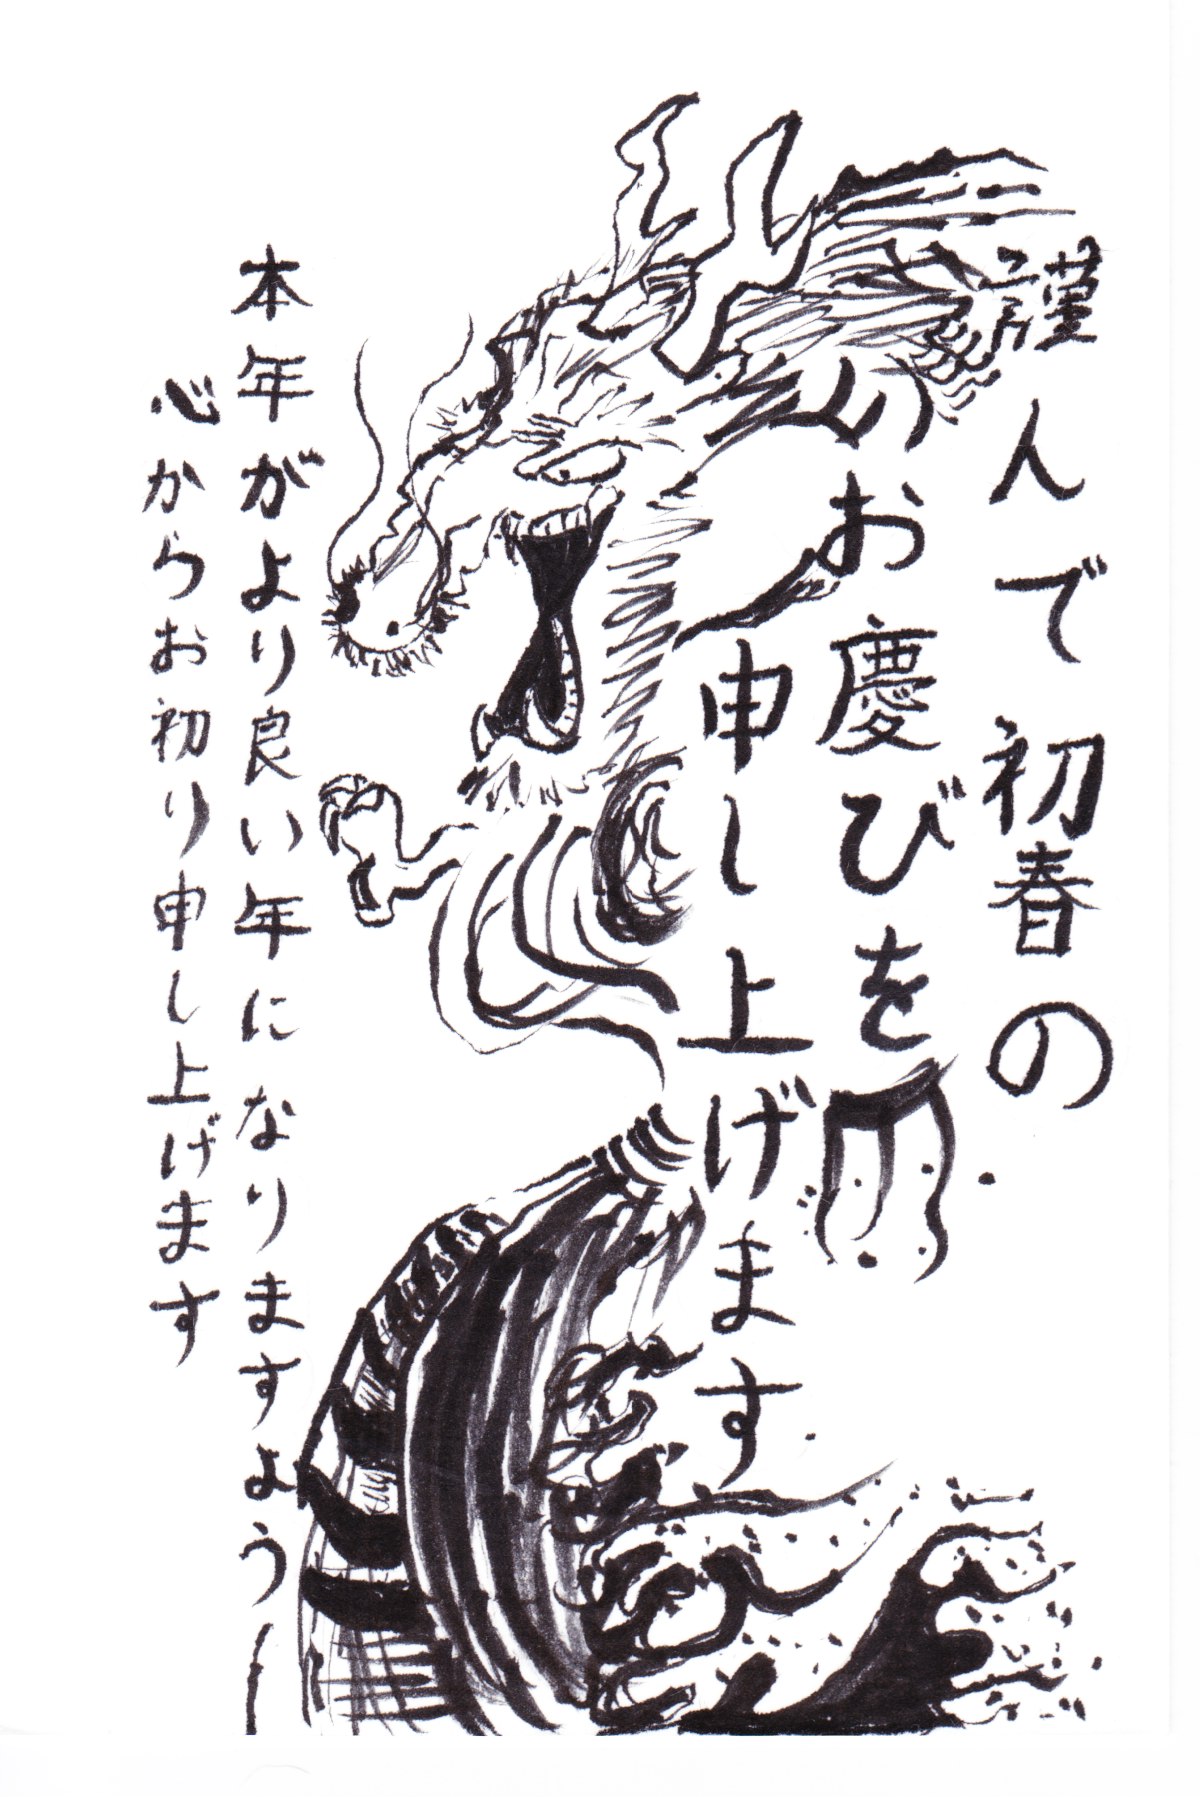 謹んで初春の
お慶びを
申し上げます
本年がより良い年になりますよう
心からお初り申し上げます